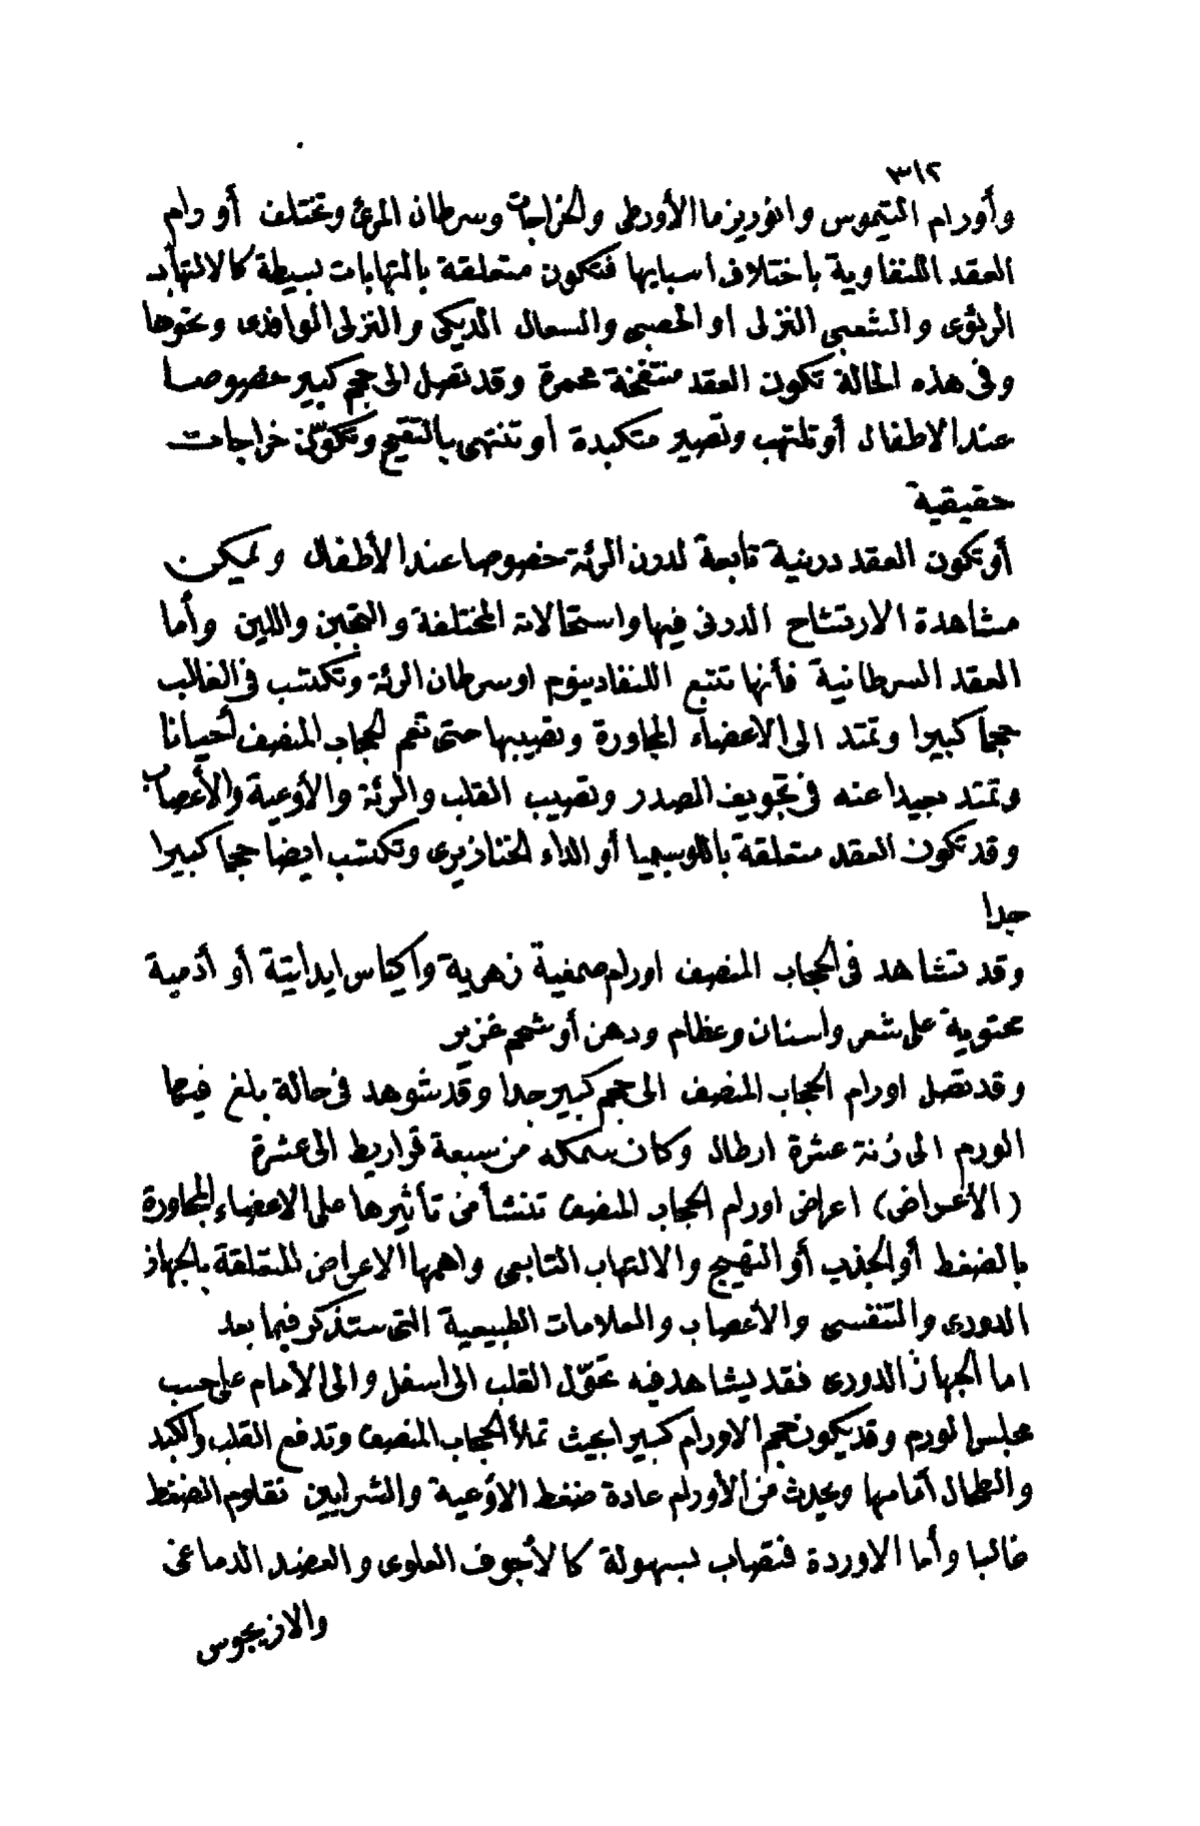 ٣١٢
وأورام التيموس وانوريزما الأورطى والخراجات وسرطان المرئ وتختلف أورام
العقد اللنفاوية باختلاف اسبابها فتكون متعلقة بالتهابات بسيطة كالالتهاب
الرئوى والشعبى النزلى او الحصبى والسعال الديكى والنزلى الوافدى ونحوها
وفى هذه الحالة تكون العقد منتفخة محمرة وقد تصل الى حجم كبير خصوصا
عند الاطفال أو تلتهب وتصير متكبدة او تنتهى بالتقيح وتكوّن خراجات
حقيقية
أو تكون العقد درنية تابعة لدرن الرئة خصوصا عند الأطفال ويمكن
مشاهدة الارتشاح الدرنى فيها واستحالاته المختلفة والتجبن واللين وأما
العقد السرطانية فأنها تتبع اللنفادينوم او سرطان الرئة وتكتسب فى الغالب
حجما كبيرا وتمتد الى الاعضاء المجاورة وتصيبها حتى تعم الحجاب المنصف أحيانا
وتمتد بعيدا عنه فى تجويف الصدر وتصيب القلب والرئة والأوعية والأعصاب
وقد تكون العقد متعلقة باللوسيميا أو الداء الخنازيرى وتكتسب ايضا حجما كبيرا
جدا
وقد تشاهد فى الحجاب المنصف اورام صمغية زهرية واكياس ايداتية أو أدمية
محتوية على شعر واسنان وعظام ودهن أو شحم غزير
وقد تصل اورام الحجاب المنصف الى حجم كبير جدا وقد شوهد فى حالة بلغ فيها
الورم الى زنة عشرة ارطال وكان سمكه من سبعة قراريط الى عشرة
(الأعراض) اعراض اورام الحجاب المنصف تنشأ من تأثيرها على الاعضاء المجاورة
بالضغط أو الجذب أو التهيج والالتهاب التابعى واهمها الاعراض المتعلقة بالجهاز
الدورى والتنفسى والأعصاب والعلامات الطبيعية التى ستذكر فيما بعد
اما الجهاز الدورى فقد يشاهد فيه تحوّل القلب الى اسفل والى الأمام على حسب
مجلس الورم وقد يكون حجم الاورام كبيرا بحيث تملأ الحجاب المنصف وتدفع القلب والكبد
والطحال أمامها ويحدث من الأورام عادة ضغط الاوعية والشرايين تقاوم الضغط
غالبا وأما الاوردة فتصاب بسهولة كالأجوف العلوى والعضد الدماغى
والازيجوس